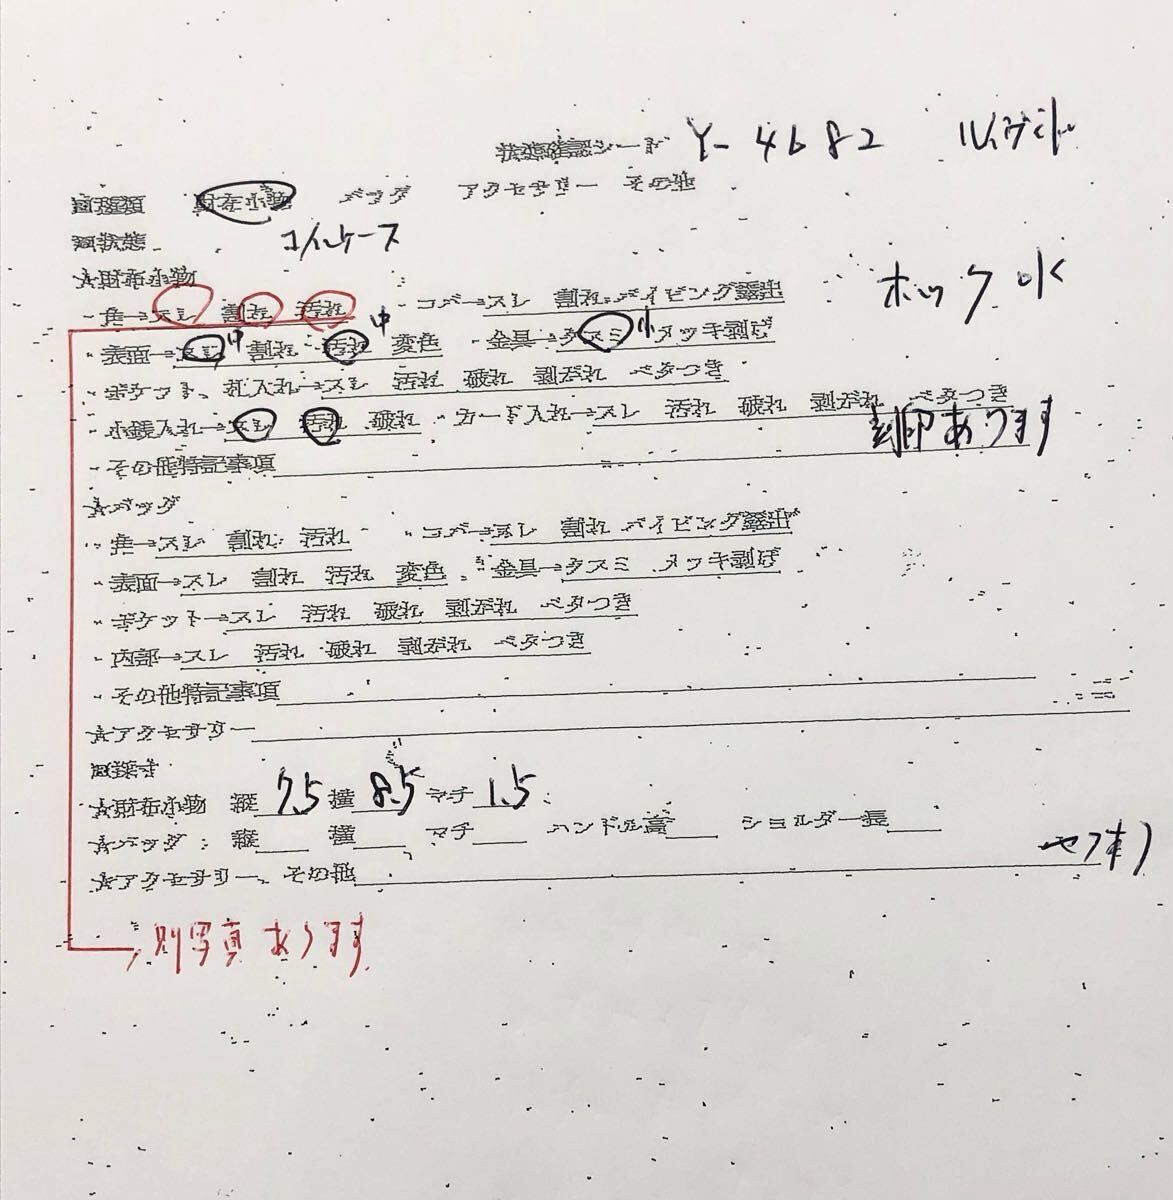 状態確認シート Y-4682 ルイヴィトン
種類 財布小物 バッグ アクセサリー その他
状態 コインケース
★財布小物
・角→スレ 割れ 汚れ ・コバ→スレ 割れ パイピング露出 ホック OK
・表面→スレ 中 割れ 汚れ 中 変色 ・金具→クスミ 小 メッキ剥げ
・ポケット、札入れ→スレ 汚れ 破れ 剥がれ ベタつき
・小銭入れ→スレ 汚れ 破れ ・カード入れ→スレ 汚れ 破れ 剥がれ ベタつき
・その他特記事項 刻印あります
★バッグ
・角→スレ 割れ 汚れ ・コバ→スレ 割れ パイピング露出
・表面→スレ 割れ 汚れ 変色 ・金具→クスミ メッキ剥げ
・ポケット→スレ 汚れ 破れ 剥がれ ベタつき
・内部→スレ 汚れ 破れ 剥がれ ベタつき
・その他特記事項
★アクセサリー
採寸
★財布小物 縦 7.5 横 8.5 マチ 1.5
★バッグ: 縦 横 マチ ハンドル高 ショルダー長
★アクセサリー、その他
別写真あります